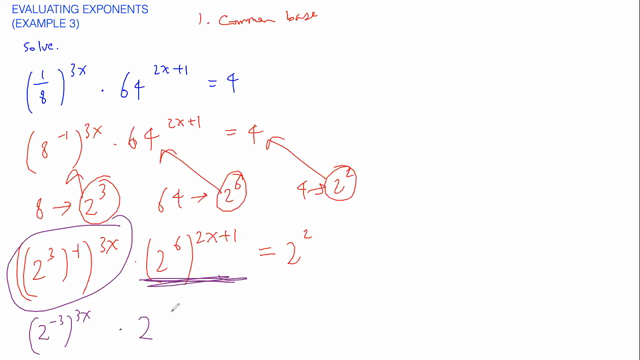 EVALUATING EXPONENTS
(EXAMPLE 3)
1. Common base
Solve.
(1/8)^{3x} · 64^{2x+1} = 4
(8^{-1})^{3x} · 64^{2x+1} = 4
8 → 2^3 64 → 2^6 4 → 2^2
((2^3)^{-1})^{3x} · (2^6)^{2x+1} = 2^2
(2^{-3})^{3x} · 2